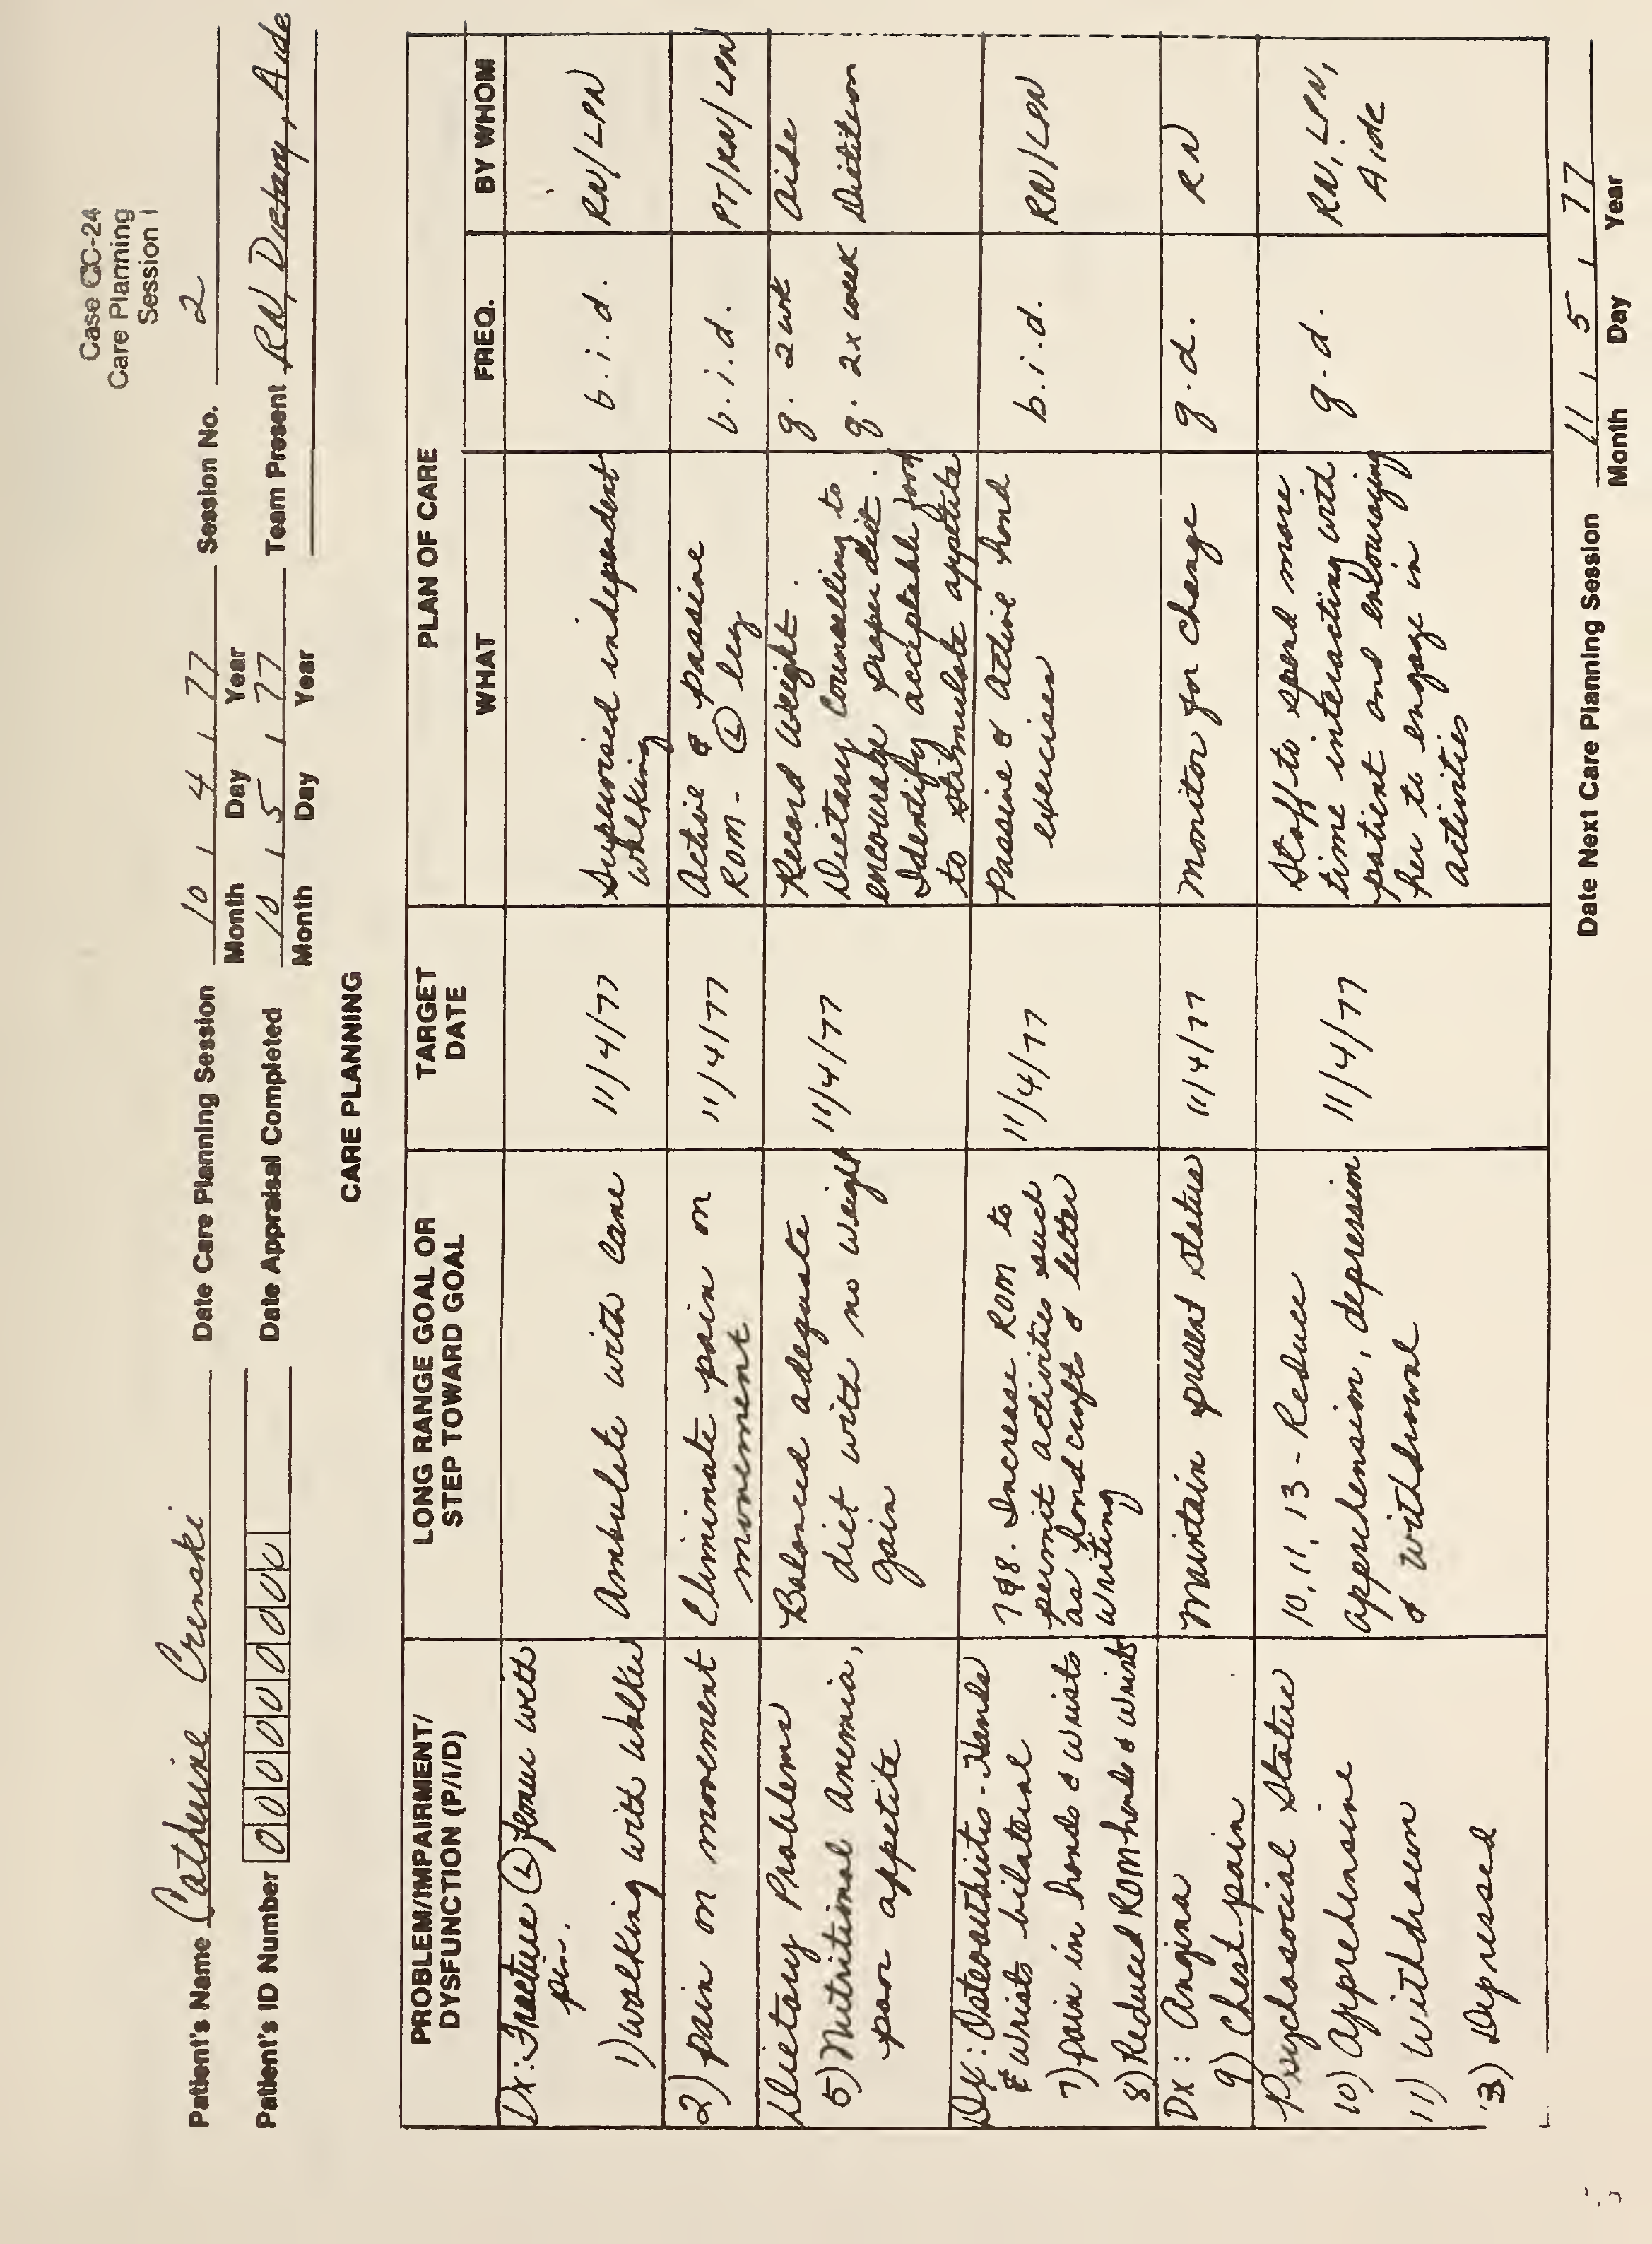 Case CC-24
Care Planning
Session I
Patient's Name Catherine Crenski Date Care Planning Session 10 / 4 / 77 Session No. 2
Month Day Year
Patient's ID Number 00000000 Date Appraisal Completed 10 / 5 / 77 Team Present RN, Dietary, Aide
Month Day Year
CARE PLANNING
PROBLEM/IMPAIRMENT/
DYSFUNCTION (P/I/D)
LONG RANGE GOAL OR
STEP TOWARD GOAL
TARGET
DATE
PLAN OF CARE
WHAT
FREQ.
BY WHOM
Dx: Fracture (L) femur with
pin.
1) Walking with walker
Ambulate with cane
11/4/77
Supervised independent
walking
b.i.d.
RN/LPN
2) pain on movement
Eliminate pain on
movement
11/4/77
Active & passive
ROM - (L) leg
b.i.d.
PT/RN/LPN
Dietary Problems
5) Nutritional Anemia,
poor appetite
Balanced adequate
diet with no weight
gain
11/4/77
Record weight.
Dietary Counselling to
encourage proper diet.
Identify acceptable food
to stimulate appetite
q. 2 wk
q. 2x week
Aide
Dietition
Dx: Osteoarthritis - Hands
& Wrists bilateral
7) pain in hands & wrists
8) Reduced ROM-hands & wrists
7&8. Increase ROM to
permit activities such
as handcrafts & letter
writing
11/4/77
Passive & Active hand
exercises
b.i.d.
RN/LPN
Dx: Angina
9) Chest pain
Maintain present status
11/4/77
Monitor for change
q.d.
RN
Psychosocial Status
10) Apprehensive
11) Withdrawn
13) Depressed
10, 11, 13 - Reduce
apprehension, depression
& withdrawal
11/4/77
Staff to spend more
time interacting with
patient and encouraging
her to engage in
activities
q.d.
RN, LPN,
Aide
Date Next Care Planning Session 11 / 5 / 77
Month Day Year